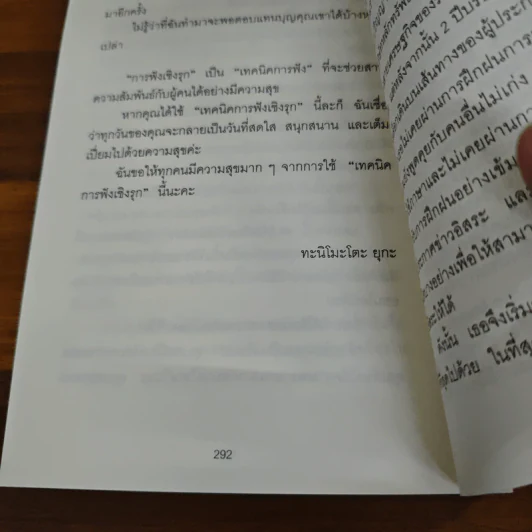 มาอีกครั้ง
ไม่รู้ว่าที่ฉันทำมาจะพอตอบแทนบุญคุณเขาได้บ้างห
เปล่า
“การฟังเชิงรุก” เป็น “เทคนิคการฟัง” ที่จะช่วยสา
ความสัมพันธ์กับผู้คนได้อย่างมีความสุข
หากคุณได้ใช้ “เทคนิคการฟังเชิงรุก” นี้ละก็ ฉันเชื่อ
ว่าทุกวันของคุณจะกลายเป็นวันที่สดใส สนุกสนาน และเต็ม
เปี่ยมไปด้วยความสุขค่ะ
ฉันขอให้ทุกคนมีความสุขมาก ๆ จากการใช้ “เทคนิค
การฟังเชิงรุก” นี้นะคะ
ทะนิโมะโตะ ยุกะ
292
เศรษฐกิจของ
หลังจากนั้น 2 ปี
บนเส้นทางของผู้ประก
ไม่เคยผ่านการฝึกฝนการ
พูดคุยกับคนอื่นไม่เก่ง
และไม่เคยผ่านการ
การฝึกฝนอย่างเข้ม
ประกาศข่าวอิสระ และ
อย่างเพื่อให้สามา
ให้ได้
ดังนั้น เธอจึงเริ่ม
ไปด้วย ในที่สุ